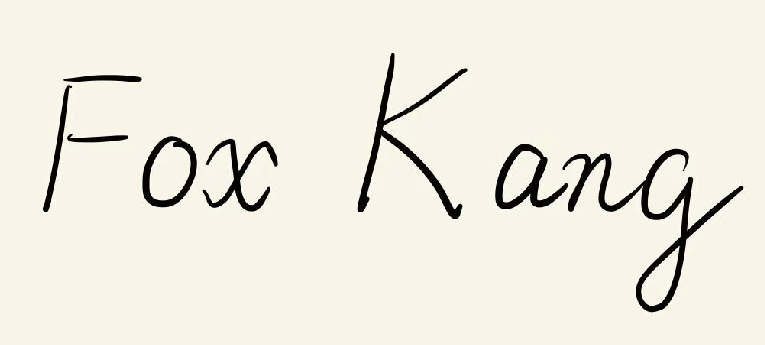 Fox Kang